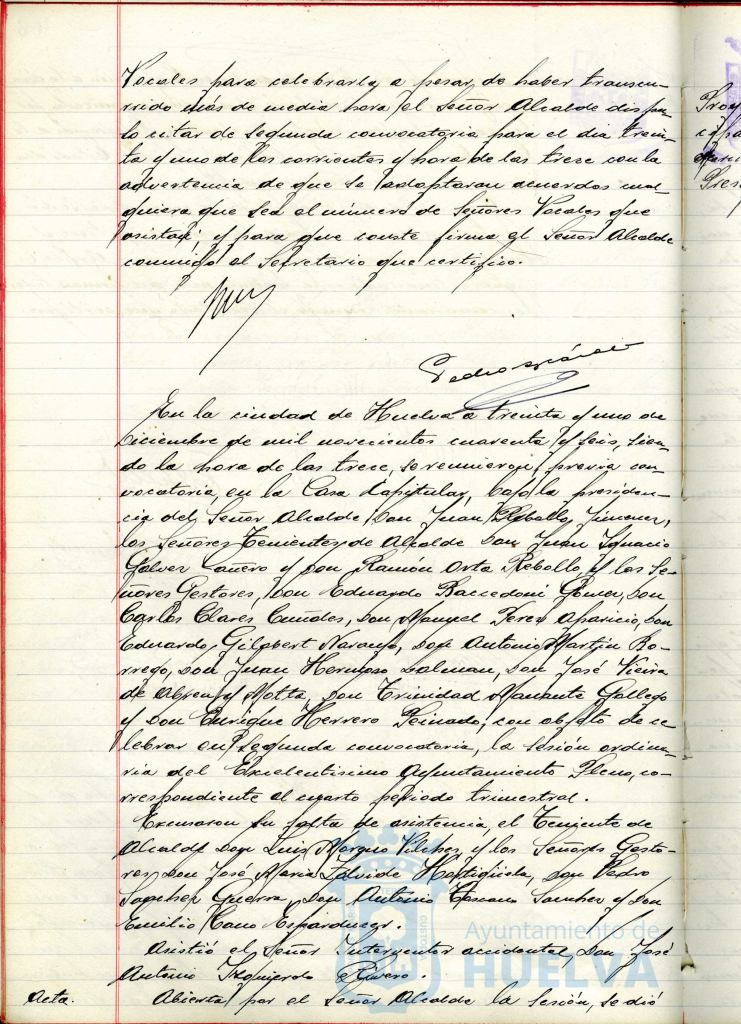 Vocales para celebrarla a pesar de haber transcu-
rrido más de media hora el Señor Alcalde dispu-
so citar de segunda convocatoria para el dia trein-
ta y uno de los corrientes y hora de las trece con la
advertencia de que se adoptaran acuerdos cual
quiera que sea el número de Señores Vocales que
asistan, y para que conste firma el Señor Alcalde
conmigo el Secretario que certifico.
Pedro
En la ciudad de Huelva a treinta y uno de
Diciembre de mil novecientos cuarenta y seis, sien-
do la hora de las trece, se reunieron, previa con-
vocatoria, en la Casa Capitular, bajo la presiden-
cia del Señor Alcalde, Don Juan Rebollo Jimenez,
los Señores Tenientes de Alcalde Don Juan Ignacio
Galvez Cañero y Don Ramón Orta Rebollo, y los Se-
ñores Gestores, Don Eduardo Baccedoni Gomez, Don
Carlos Clares Don Manuel Perez Aparicio, Don
Eduardo Gilabert Naranjo, Don Antonio Martin Bo-
rrego, Don Juan Hermoso Dalman, Don José Vieira
de Abreu y Motta, Don Trinidad Gallego
y Don Enrique Herrero Peinado, con objeto de ce-
lebrar en segunda convocatoria, la sesión ordina-
ria del Excelentisimo Ayuntamiento Pleno, co-
rrespondiente al cuarto periodo trimestral.
Excusaron su falta de asistencia, el Teniente de
Alcalde Don Luis Vilches, y los Señores Gesto-
res, Don José Maria Hortigüela, Don Pedro
Guerra, Don Antonio Sanchez y Don
Emilio Cano
Asistió el Señor Interventor accidental, Don José
Antonio Izquierdo Rivero.
Acta. Abierta por el Señor Alcalde la sesión, se dió
Ayuntamiento de
HUELVA